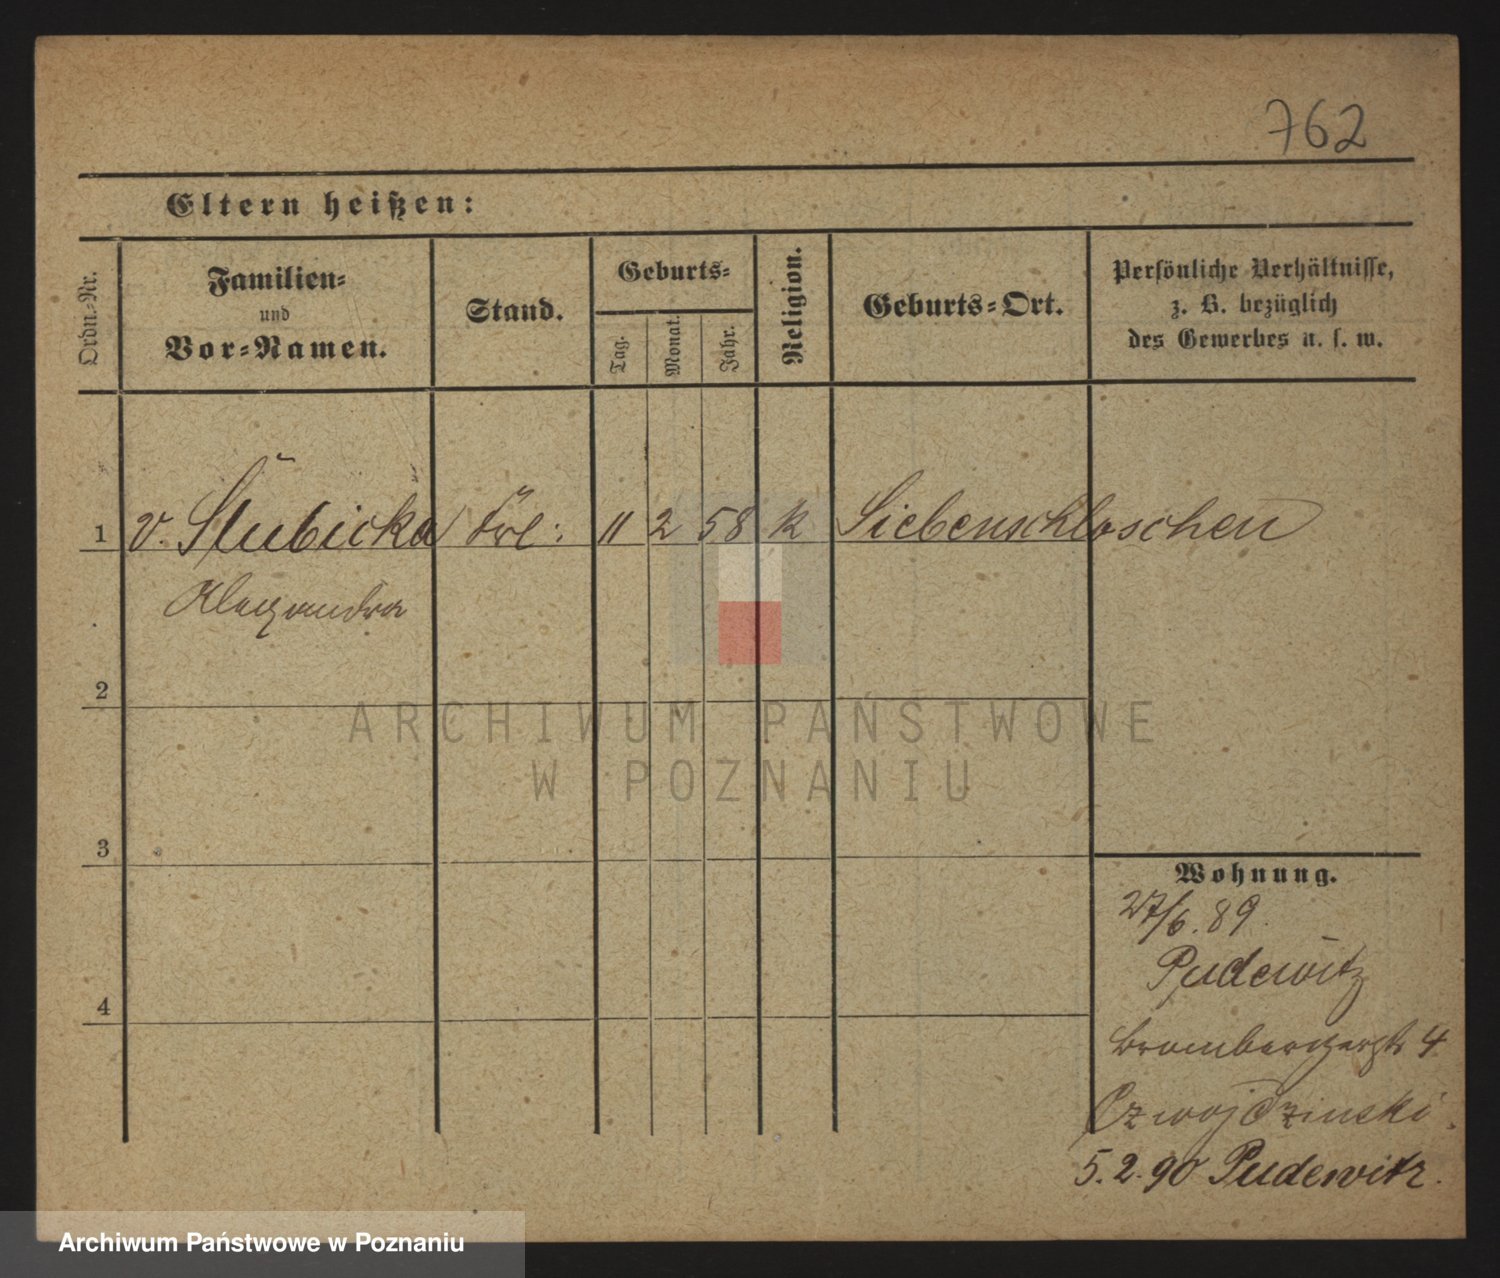 762
Eltern heißen:
Ordn.-Nr.
Familien-
und
Vor-Namen.
Stand.
Geburts-
Tag.
Monat.
Jahr.
Religion.
Geburts-Ort.
Persönliche Verhältnisse,
z. B. bezüglich
des Gewerbes u. s. w.
1 v. Słubicka Frl: 11 2 58 k Siebenschloschen
Alexandra
2
ARCHIWUM PAŃSTWOWE
W POZNANIU
3
Wohnung.
27/6. 89.
Pudewitz
4
Brombergerstr 4
Czwojdzinski.
5. 2. 90 Pudewitz.
Archiwum Państwowe w Poznaniu